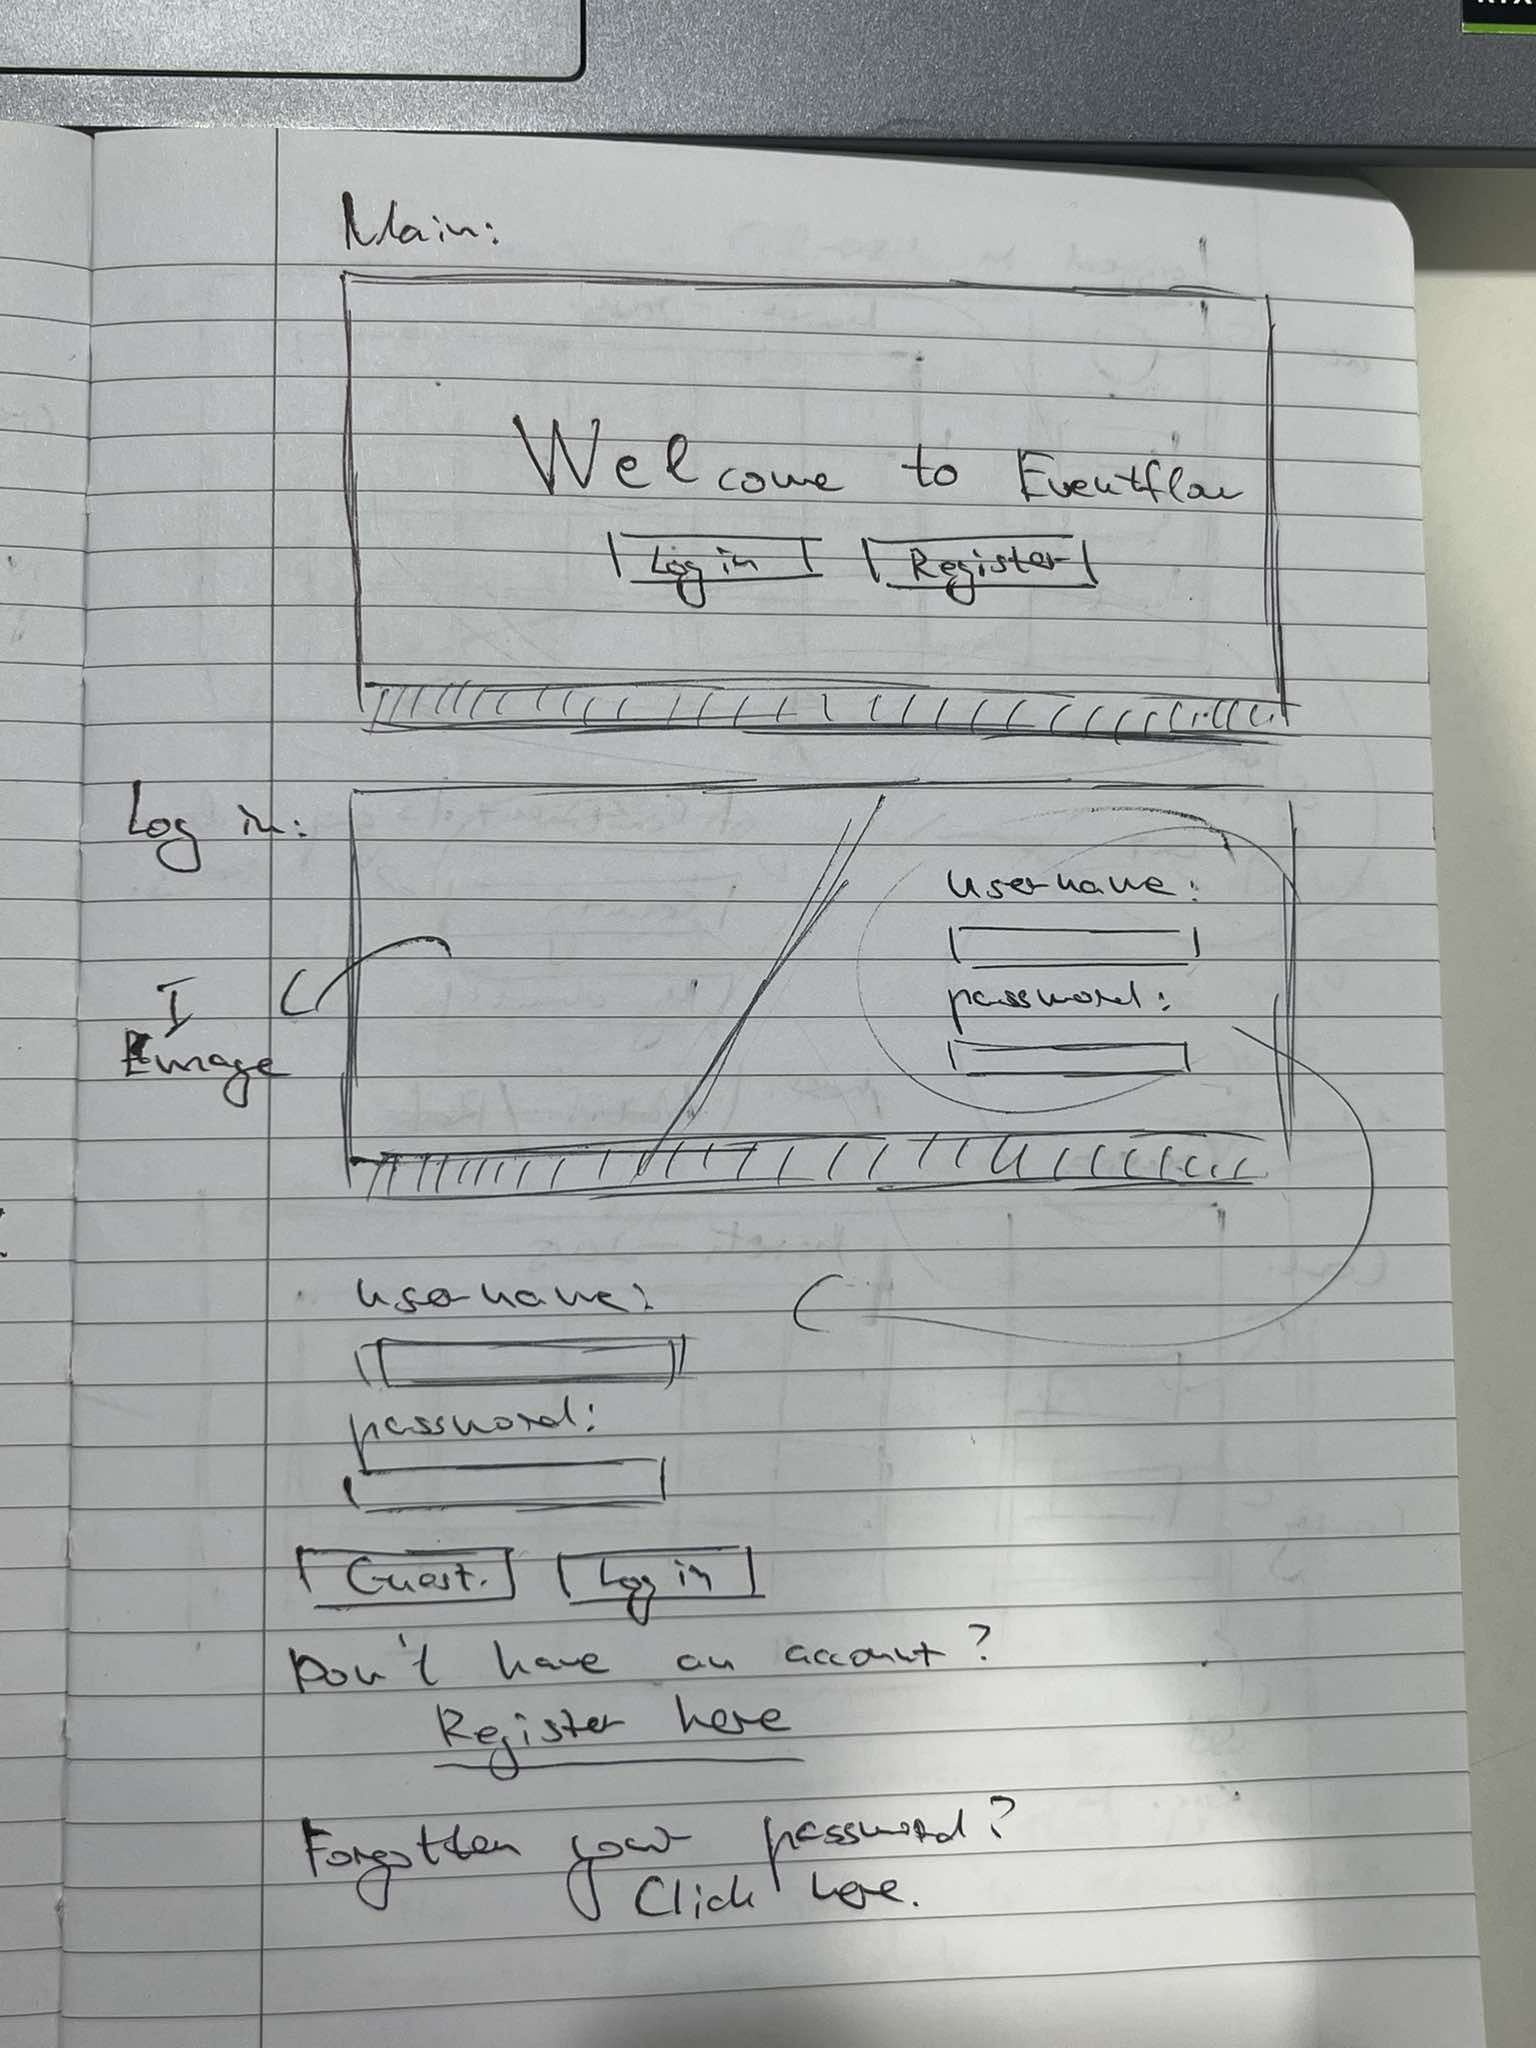 Main:
Welcome to Eventflow
Log in Register
Log in:
username:
password:
I
Image
username:
password:
Guest. Log in
Don't have an account?
Register here
Forgotten your password?
Click here.